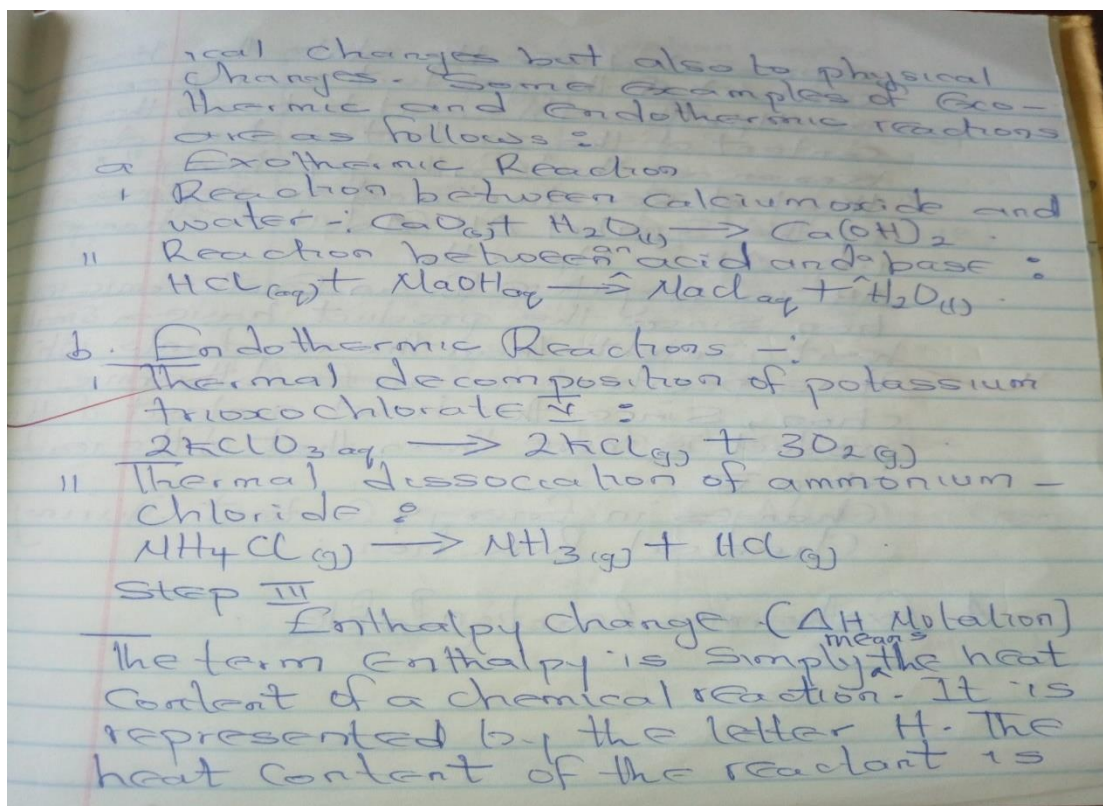 ical changes but also to physical
changes. Some examples of Exo-
thermic and Endothermic reactions
are as follows :
a Exothermic Reaction
i Reaction between calciumoxide and
water -: CaO(s)+ H2O(l) → Ca(OH)2 .
ii Reaction between an acid and a base :
HCl (aq) + NaOH aq → Nacl aq + H2O(l) .
b. Endothermic Reactions -:
i Thermal decomposition of potassium
trioxochlorate V :
2KClO3 aq → 2KCl(g) + 3O2(g)
ii Thermal dissociation of ammonium -
chloride :
NH4Cl (g) → NH3(g) + HCl (g) .
Step III
Enthalpy change (ΔH Notation)
The term Enthalpy is simply means the heat
Content of a chemical reaction. It is
represented by the letter H. The
heat Content of the reactant is